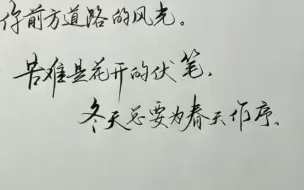 你前方道路的风光。
苦难是花开的伏笔,
冬天总要为春天作序、